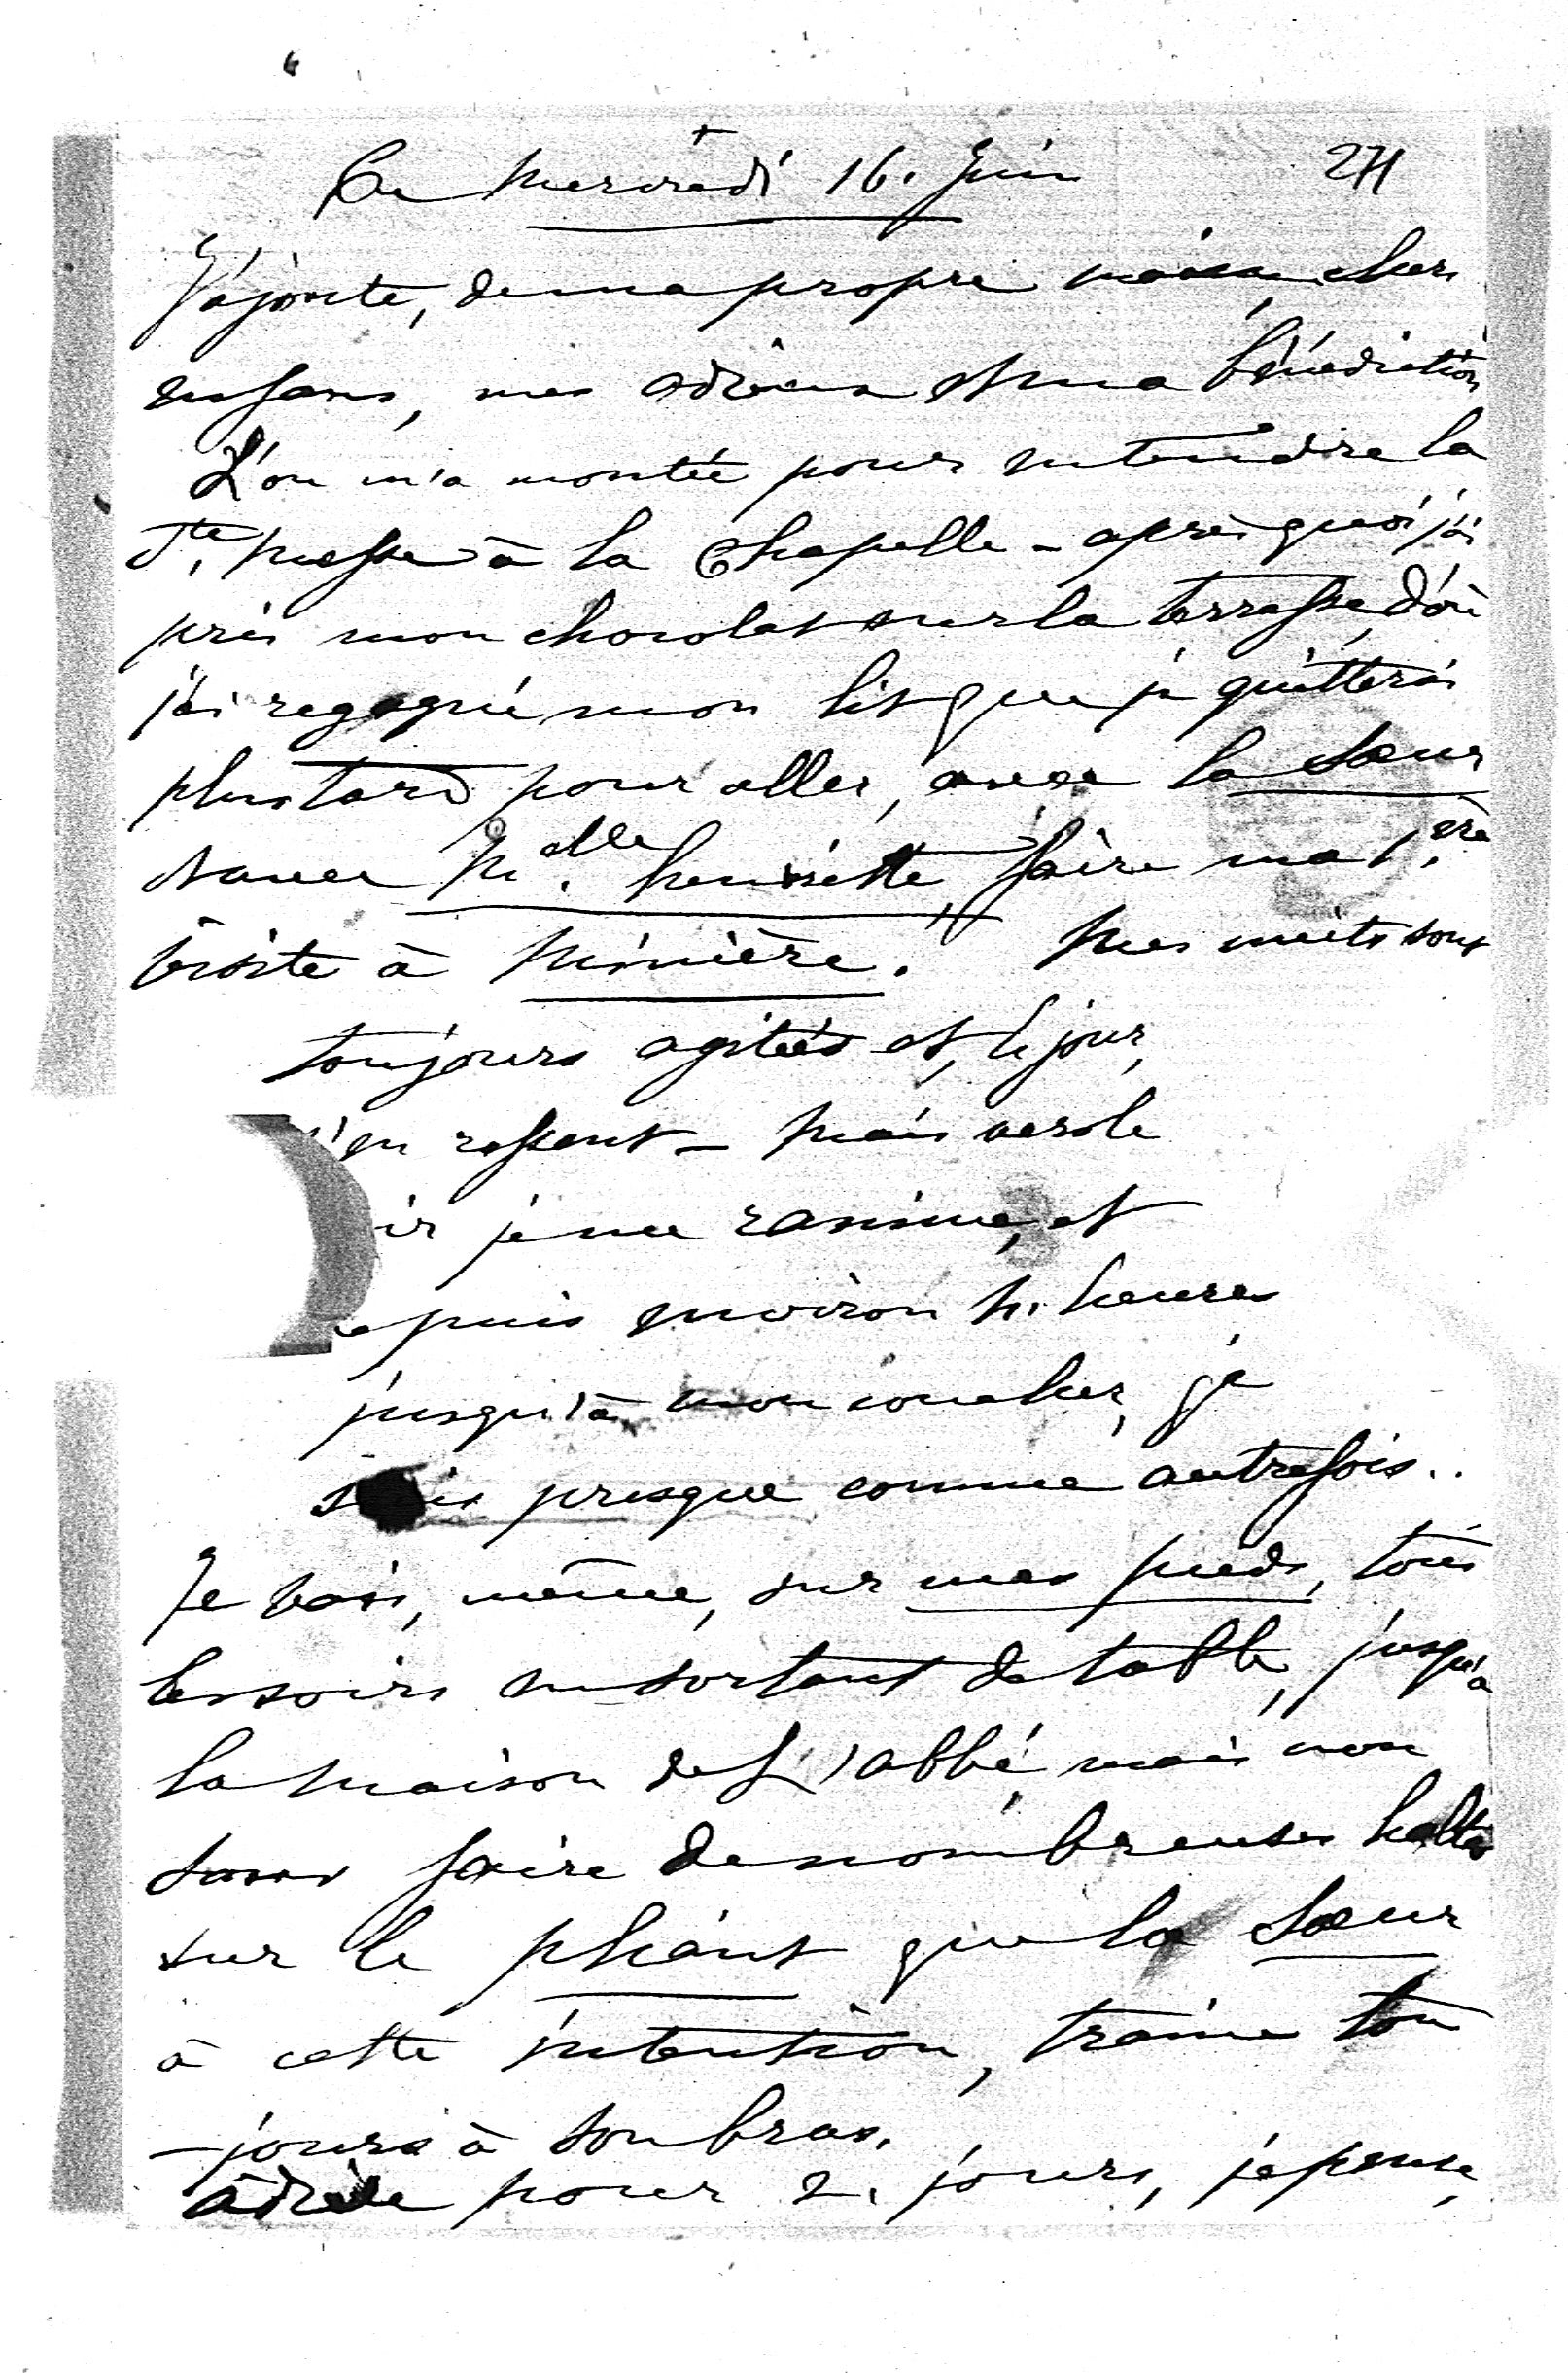 Ce mercredi 16. Juin 271
J'ajoute, de ma propre main, chers
enfans, mes adieux et ma bénédiction
L'on m'a montée pour entendre la
Ste. messe à la Chapelle - après quoi j'ai
pris mon chocolat sur la terrasse, d'où
j'ai regagné mon lit que je quitterai
plus tard pour aller, avec la Sœur
et avec Melle. henriette, faire ma 1.ère
visite à Minière. Mes nuits sont
toujours agitées et, le jour,
'en ressent - mais vers le
ir je me ranime, et
epuis environ h. heures
jusqu'à mon coucher, je
suis presque comme autrefois..
Je vais, même, sur mes pieds, tous
les soirs en sortant de table, jusqu'à
la maison de L'abbé, mais non
sans faire de nombreuses haltes
sur le pliant que la Sœur
à cette intention, traine tou
-jours à son bras.
adieu pour 2. jours, je pense,